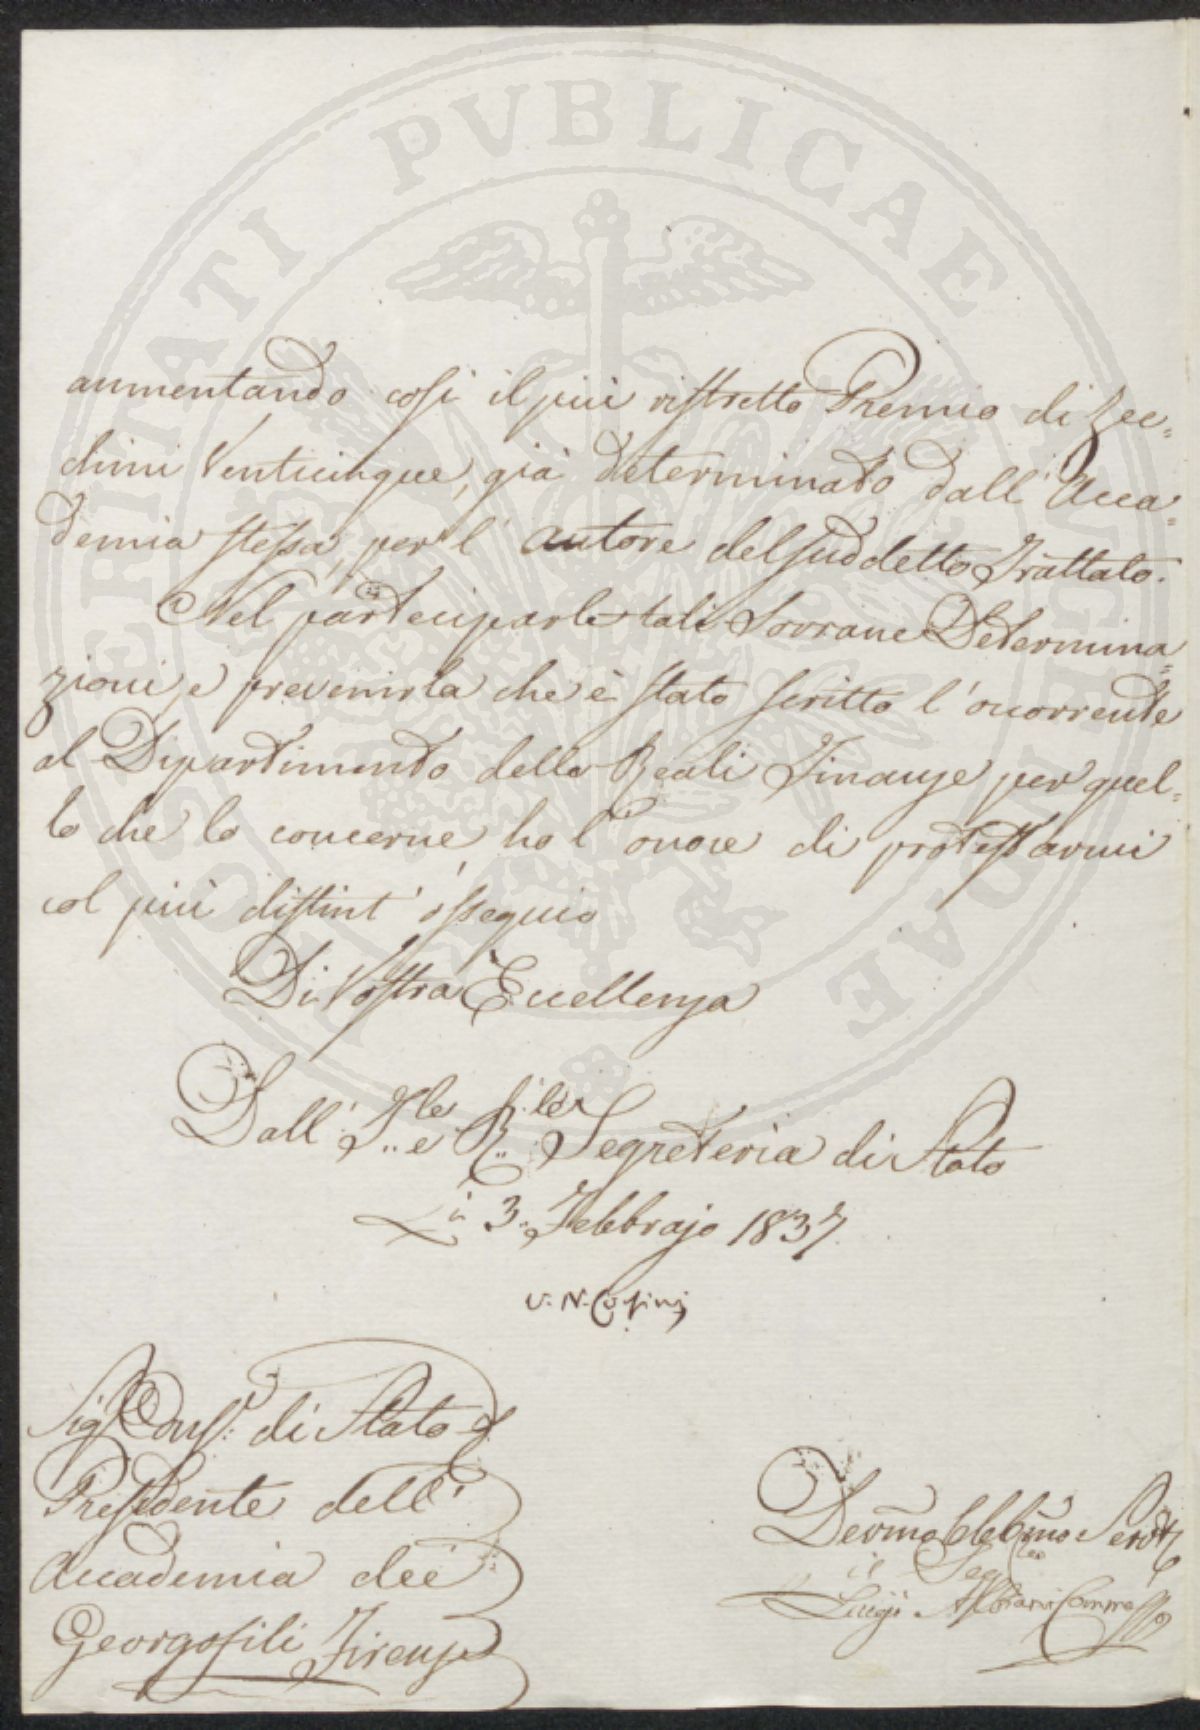 PROSPERITATI PVBLICAE AVGENDAE
aumentando così il più ristretto Premio di Zec=
chini Venticinque, già determinato dall' Acca=
demia stessa, per l' autore del suddetto Trattato.
Nel parteciparle tali Sovrane Determina=
zioni, e prevenirla che è stato scritto l' occorrente
al Dipartimento delle Reali Finanze per quel=
lo che lo concerne, ho l' onore di protestarmi
col più distint' ossequio
Di Vostra Eccellenza
Dall' I.le e R.le Segreteria di Stato
Li 3. Febbrajo 1837.
V. N. Corsini
Sig. Cons. di Stato
Presidente dell'
Accademia dei
Georgofili Firenze
Devmo Obblmo Servit
il Seg
Luigi Albiani Commesso